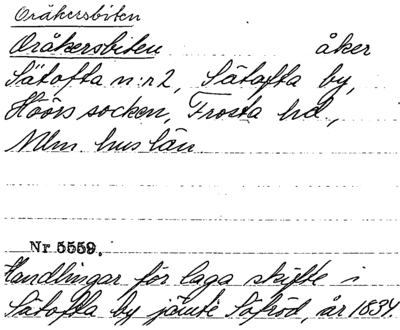 Oråkersbiten
Oråkersbiten åker
Sätofta n:r 2, Sätofta by,
Höörs socken, Frosta hd,
Mlm hus län
Nr 5559.
Handlingar för laga skifte i
Sätofta by jämte Säfröd, år 1834.